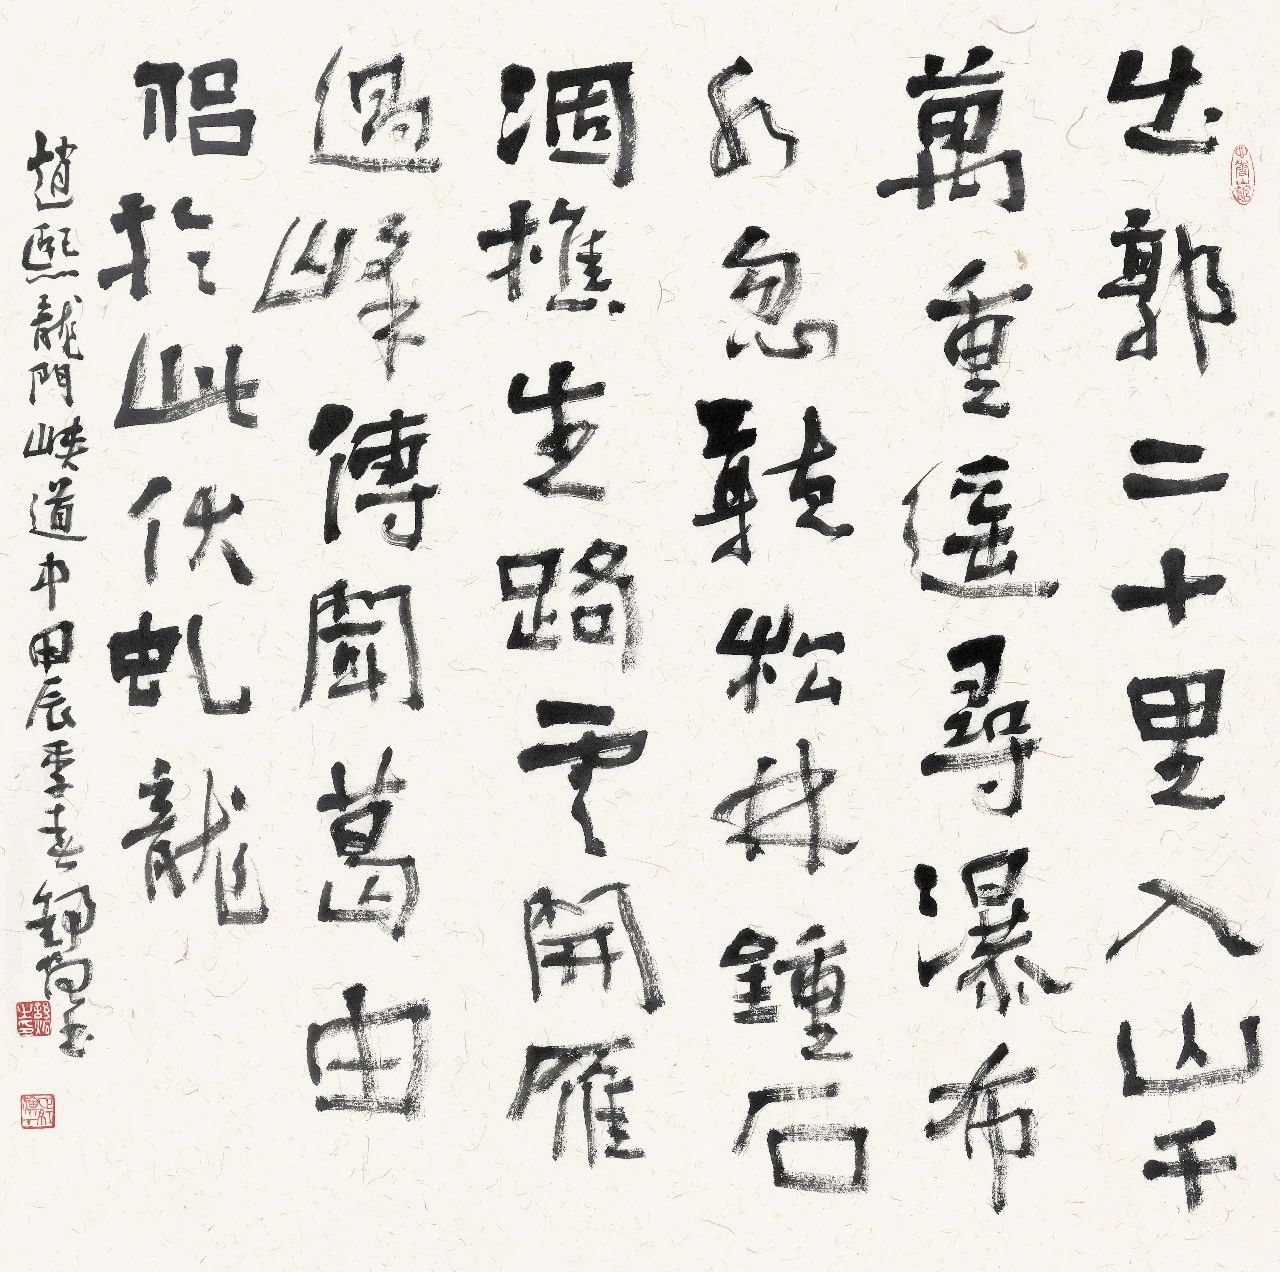 出郭二十里入山千
萬重遥尋瀑布
水忽聽松林鐘石
涸樵生路雲開雁
過峰傳聞葛由
侣於此伏虬龍
趙熙龍門峽道中甲辰季春